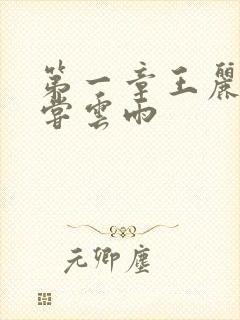 第一章王麗
嘗雲雨
元卿塵